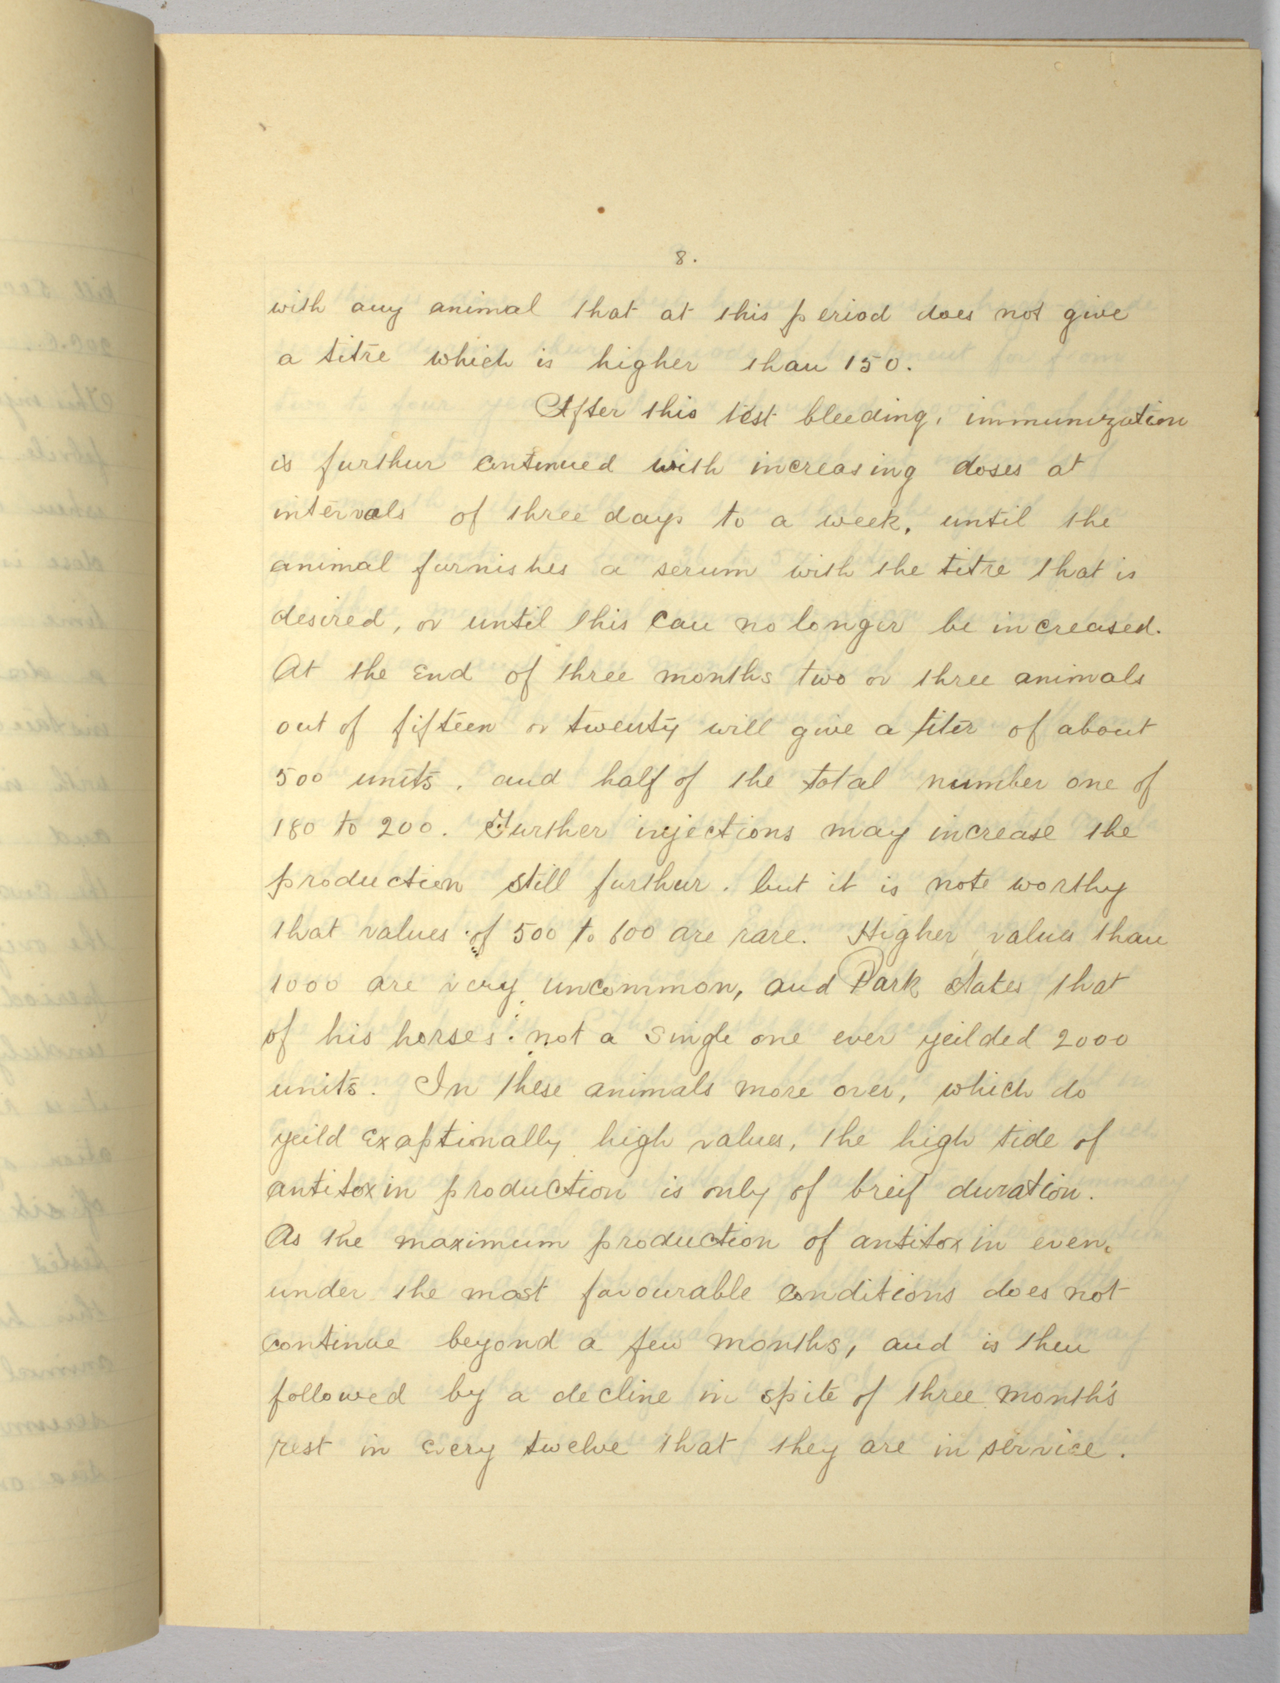 8.
with any animal that at this period does not give
a titre which is higher than 150.
After this test bleeding, immunization
is furthur continued with increasing doses at
intervals of three days to a week, until the
animal furnishes a serum with the titre that is
desired, or until this can no longer be increased.
At the end of three months two or three animals
out of fifteen or twenty will give a titer of about
500 units, and half of the total number one of
180 to 200. Further injections may increase the
production still furthur. but it is note worthy
that values of 500 to 600 are rare. Higher values than
1000 are very uncommon, and Park states that
of his horses not a single one ever yeilded 2000
units. In these animals more over, which do
yeild exaptionally high values, the high tide of
antitoxin production is only of breif duration.
As the maximum production of antitoxin even
under the most favourable conditions does not
continue beyond a few months, and is then
followed by a decline in spite of three month's
rest in every twelve that they are in service.